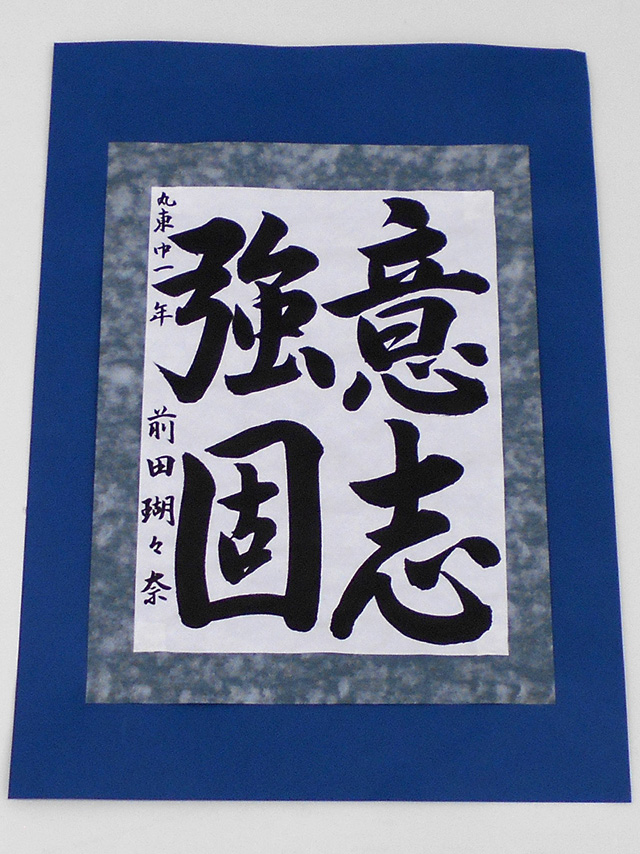 意志
強固
丸東中一年 前田瑚々奈